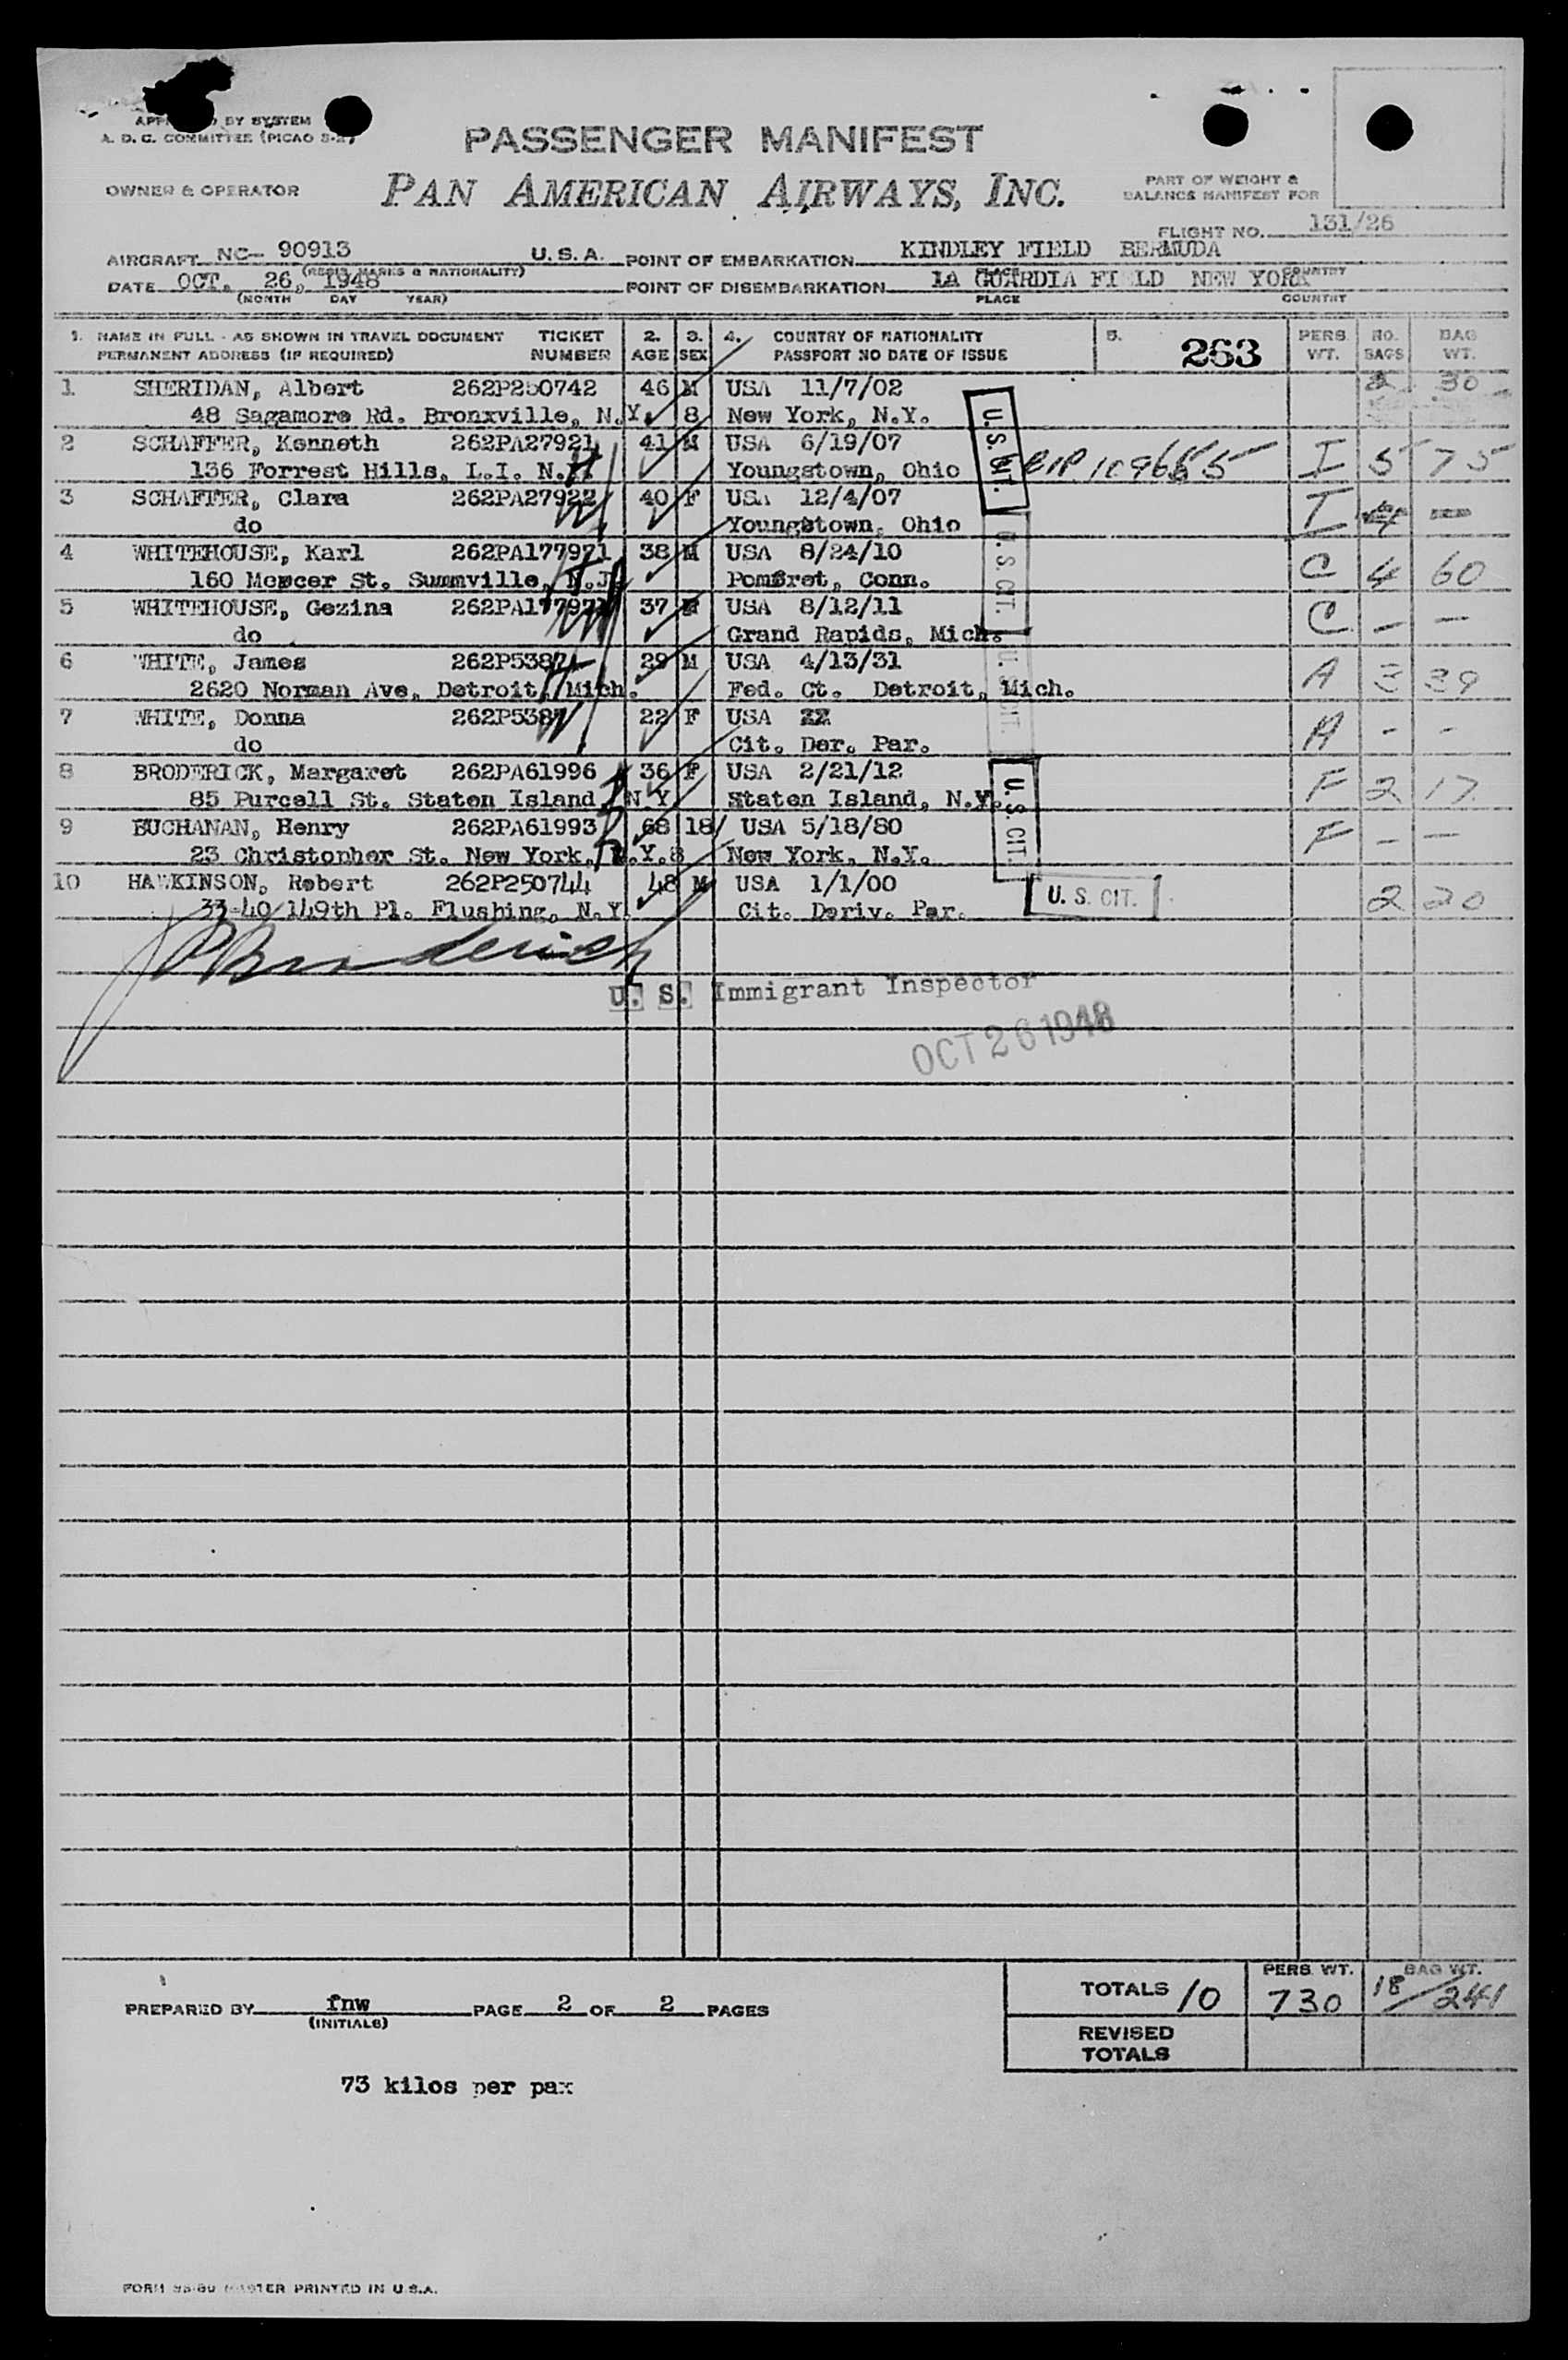 BY SYSTEM
A. D. C. COMMITTEE (PICAO S-2)
PASSENGER MANIFEST
OWNER & OPERATOR PAN AMERICAN AIRWAYS, INC.
PART OF WEIGHT &
BALANCE MANIFEST FOR
FLIGHT NO. 131/26
AIRCRAFT NC- 90913 U.S.A. POINT OF EMBARKATION KINDLEY FIELD BERMUDA
(REGIS. MARKS & NATIONALITY) PLACE COUNTRY
DATE OCT. 26, 1948 POINT OF DISEMBARKATION LA GUARDIA FI LD NEW YORK
(MONTH DAY YEAR) PLACE COUNTRY
1. NAME IN FULL - AS SHOWN IN TRAVEL DOCUMENT TICKET 2. 3. 4. COUNTRY OF NATIONALITY 5. 263 PERS. NO. BAG
PERMANENT ADDRESS (IF REQUIRED) NUMBER AGE SEX PASSPORT NO DATE OF ISSUE WT. BAGS WT.
1 SHERIDAN, Albert 262P250742 46 M USA 11/7/02 2 30
48 Sagamore Rd. Bronxville, N.Y. 8 New York, N.Y.
U.S. CIT.
2 SCHAFFER, Kenneth 262PA27921 41 M USA 6/19/07 I 5 75
136 Forrest Hills, L.I. N.Y. Youngstown, Ohio
3 SCHAFFER, Clara 262PA27922 40 F USA 12/4/07 I —
do Youngstown, Ohio
U.S. CIT.
4 WHITEHOUSE, Karl 262PA177971 38 M USA 8/24/10 C 4 60
160 Mercer St. Summville, N.J. Pomfret, Conn.
5 WHITEHOUSE, Gezina 37 USA 8/12/11 C — —
do Grand Rapids, Mich.
U.S. CIT.
6 WHITE, James 29 M USA 4/13/31 A 3 39
2620 Norman Ave, Detroit, Mich. Fed. Ct. Detroit, Mich.
7 WHITE, Donna 22 F USA A - -
do Cit. Der. Par.
8 BRODERICK, Margaret 262PA61996 36 F USA 2/21/12 F 2 17
85 Purcell St. Staten Island, N.Y. Staten Island, N.Y.
U.S. CIT.
9 BUCHANAN, Henry 262PA61993 68 18/ USA 5/18/80 F — —
23 Christopher St. New York, N.Y. 8 New York, N.Y.
10 HAWKINSON, Robert 262P250744 48 M USA 1/1/00 2 20
33-40 149th Pl. Flushing, N.Y. Cit. Deriv. Par. U. S. CIT.
Broderick
U. S. Immigrant Inspector
OCT 26 1948
PREPARED BY fnw PAGE 2 OF 2 PAGES
(INITIALS)
PERS. WT. BAG WT.
TOTALS 10 730 18/241
REVISED
TOTALS
73 kilos per pax
PRINTED IN U.S.A.